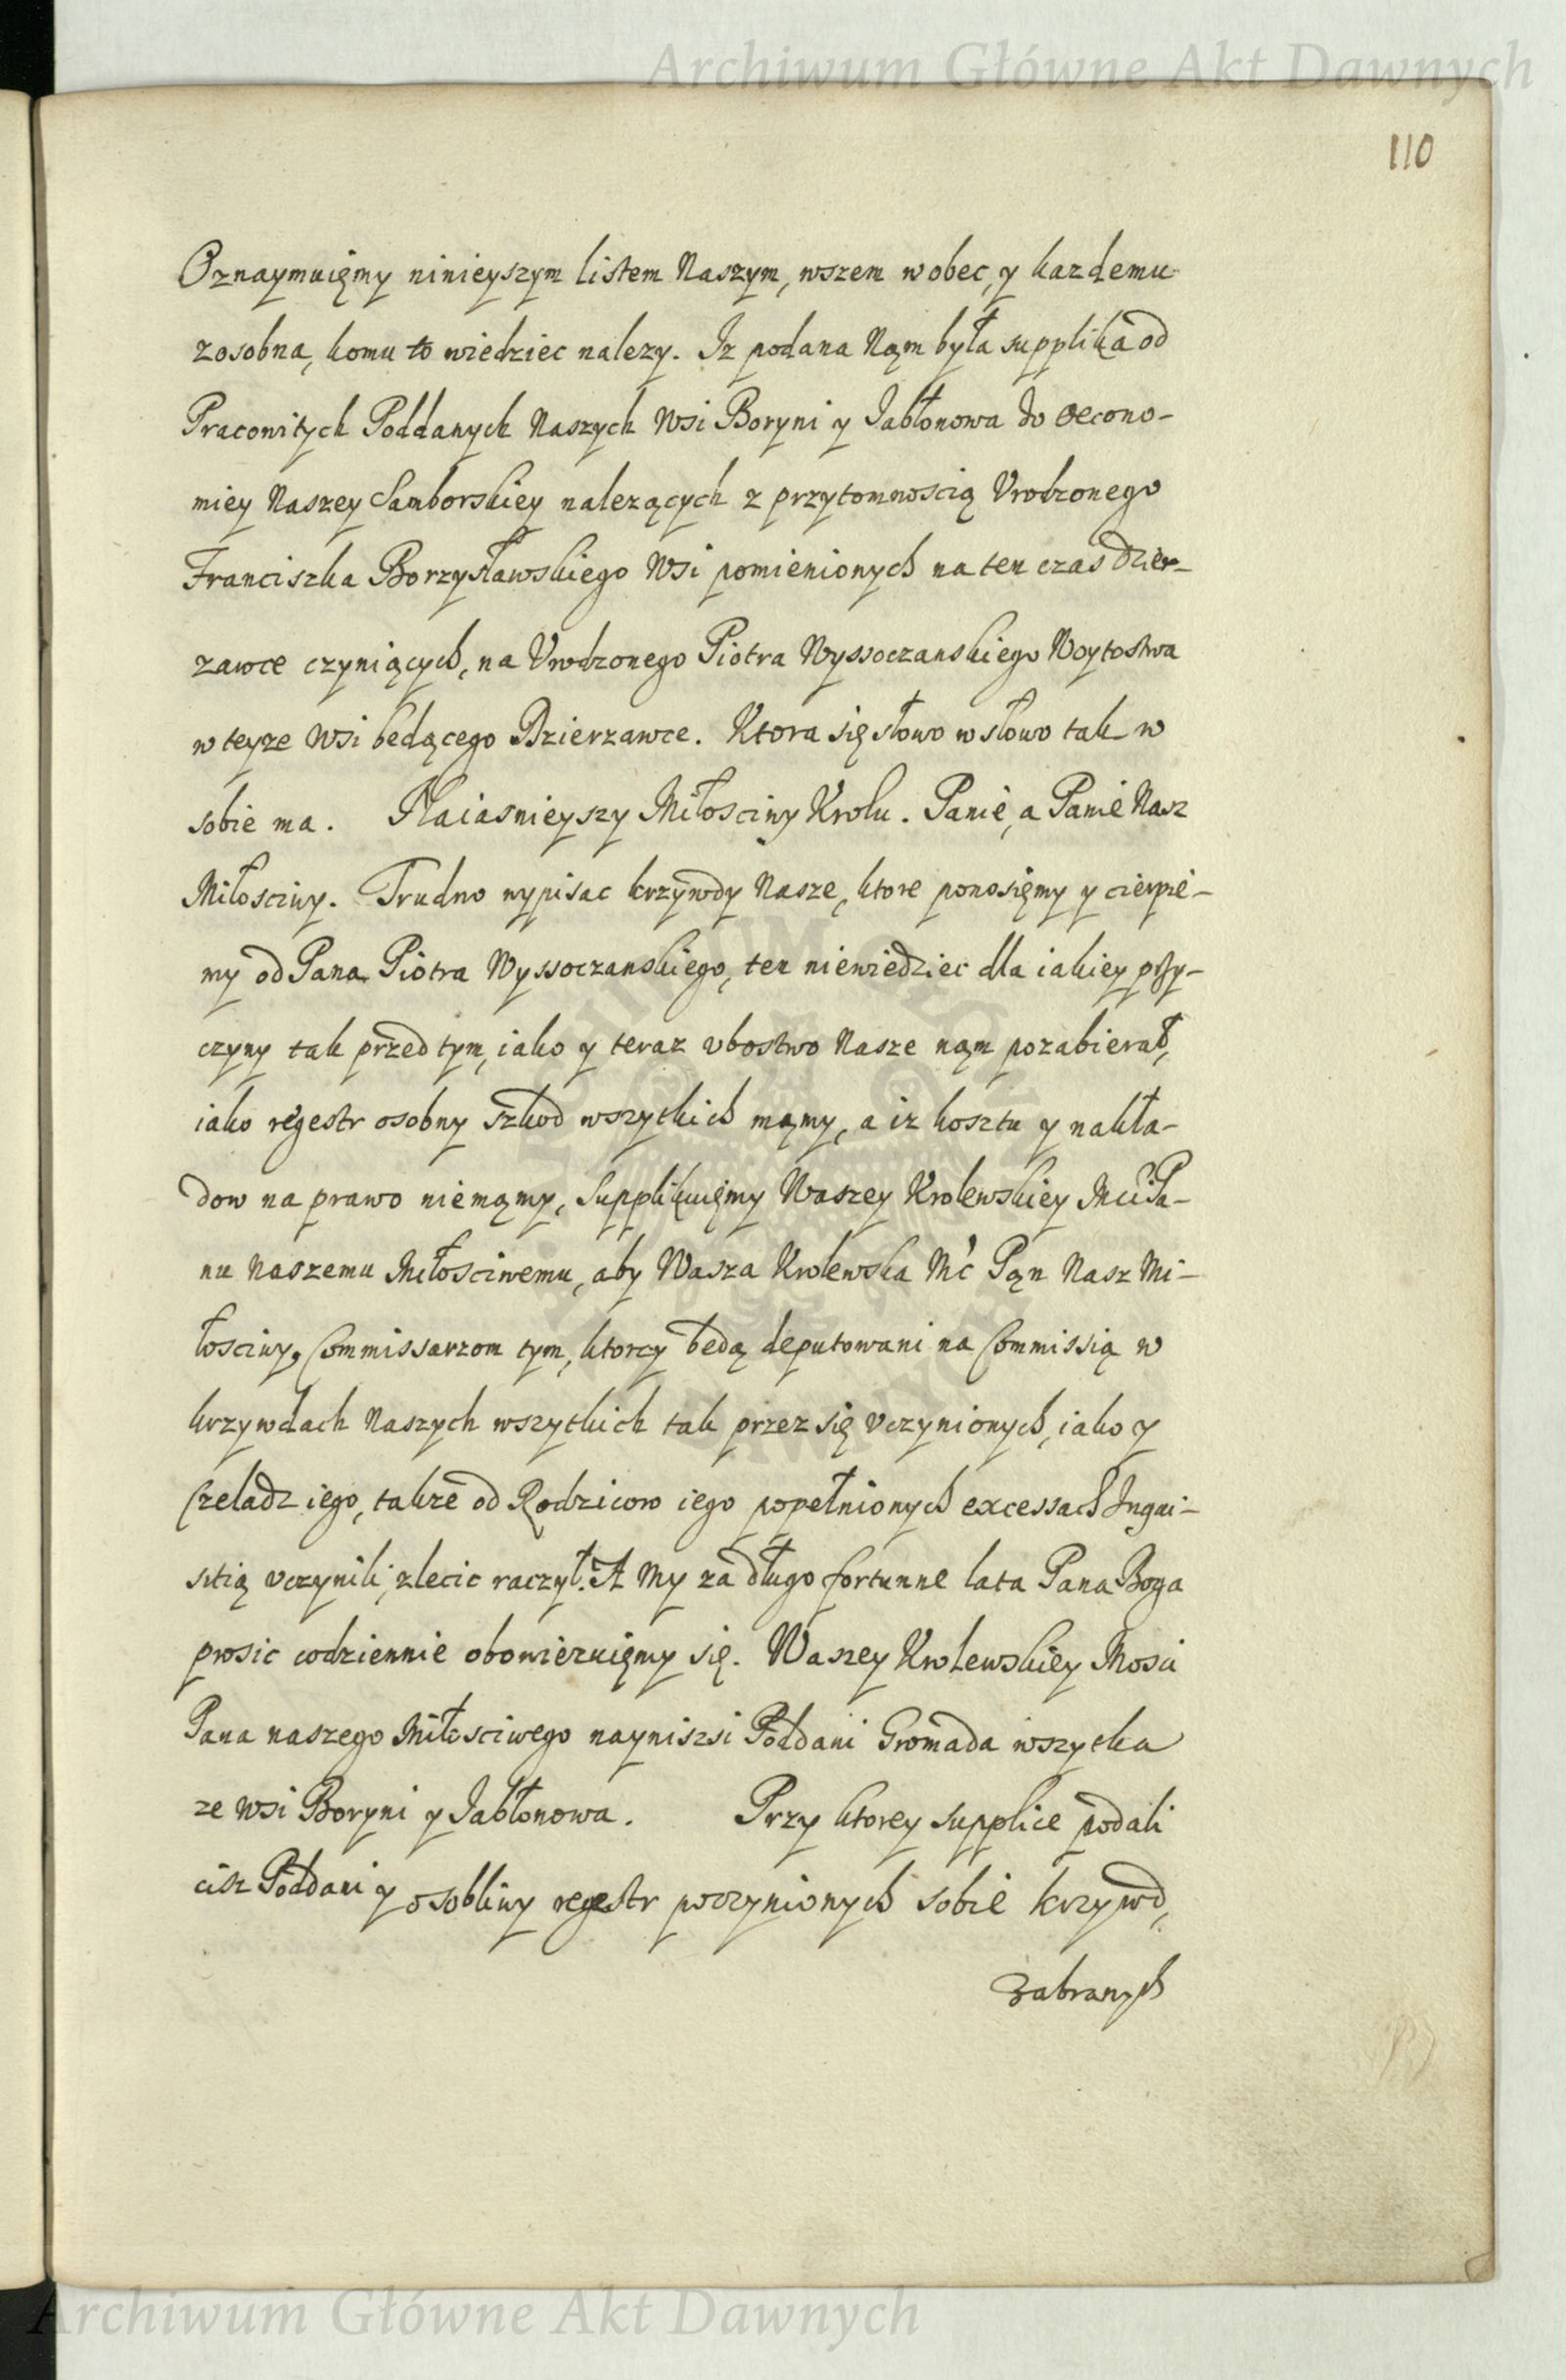 Archiwum Główne Akt Dawnych
110
Oznaymuięmy ninieyszym listem Naszym, wszem wobec, y kazdemu
zosobna, komu to wiedziec nalezy. Iz podana Nąm była supplika od
Pracowitych Poddanych Naszych Wsi Boryni y Jabłonowa do Oecono-
miey Naszey Samborskiey nalezących z przytomnoscią Vrodzonego
Franciszka Borzysławskiego Wsi pomienionych na ten czas Dzier-
zawce czyniących, na Vrodzonego Piotra Wyssoczanskiego Woytostwa
w teyze Wsi będącego Dzierzawce. Ktora się słowo w słowo tak w
sobie ma. Naiasnieyszy Miłosciwy Krolu. Panie, a Panie Nasz
Miłosciwy. Trudno wypisac krzywdy Nasze, ktore ponosięmy y cierpie-
my od Pana Piotra Wyssoczanskiego, ten niewiedziec dla iakiey przy-
czyny tak przed tym, iako y teraz vbostwo Nasze nąm pozabierał,
iako regestr osobny szkod wszytkich mąmy, a iz kosztu y nakła-
dow na prawo niemąmy, Supplikuięmy Waszey Krolewskiey Mci Pa-
nu Naszemu Miłosciwemu, aby Wasza Krolewska Mć Pąn Nasz Mi-
łosciwy, Commissarzom tym, ktorzy będą deputowani na Commissią w
krzywdach Naszych wszytkich tak przez się vczynionych, iako y
Czeladz iego, takze od Rodzicow iego popełnionych excessach Inqui-
sitią vczynili, zlecic raczył. A My za długo fortunne lata Pana Boga
prosic codziennie obowiezuięmy się. Waszey Krolewskiey Mosci
Pana naszego Miłosciwego nayniszsi Poddani Gromada wszytka
ze Wsi Boryni y Jabłonowa. Przy ktorey supplice podali
cisz Poddani y osobliwy regestr poczynionych sobie krzywd,
Zabranych
Archiwum Główne Akt Dawnych